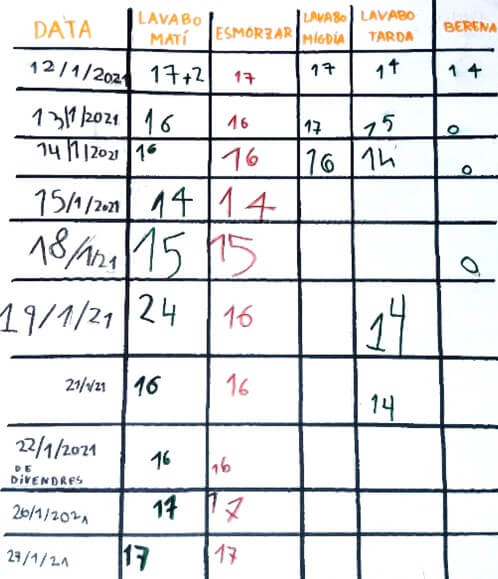 DATA LAVABO MATÍ ESMORZAR LAVABO MIGDIA LAVABO TARDA BERENA
12/1/2021 17+2 17 17 14 14
13/1/2021 16 16 17 15 0
14/1/2021 16 16 16 14 0
15/1/2021 14 14
18/1/21 15 15 0
19/1/21 24 16 14
21/1/21 16 16 14
22/1/2021 16 16
DE
DIVENDRES
26/1/2021 17 17
27/1/21 17 17